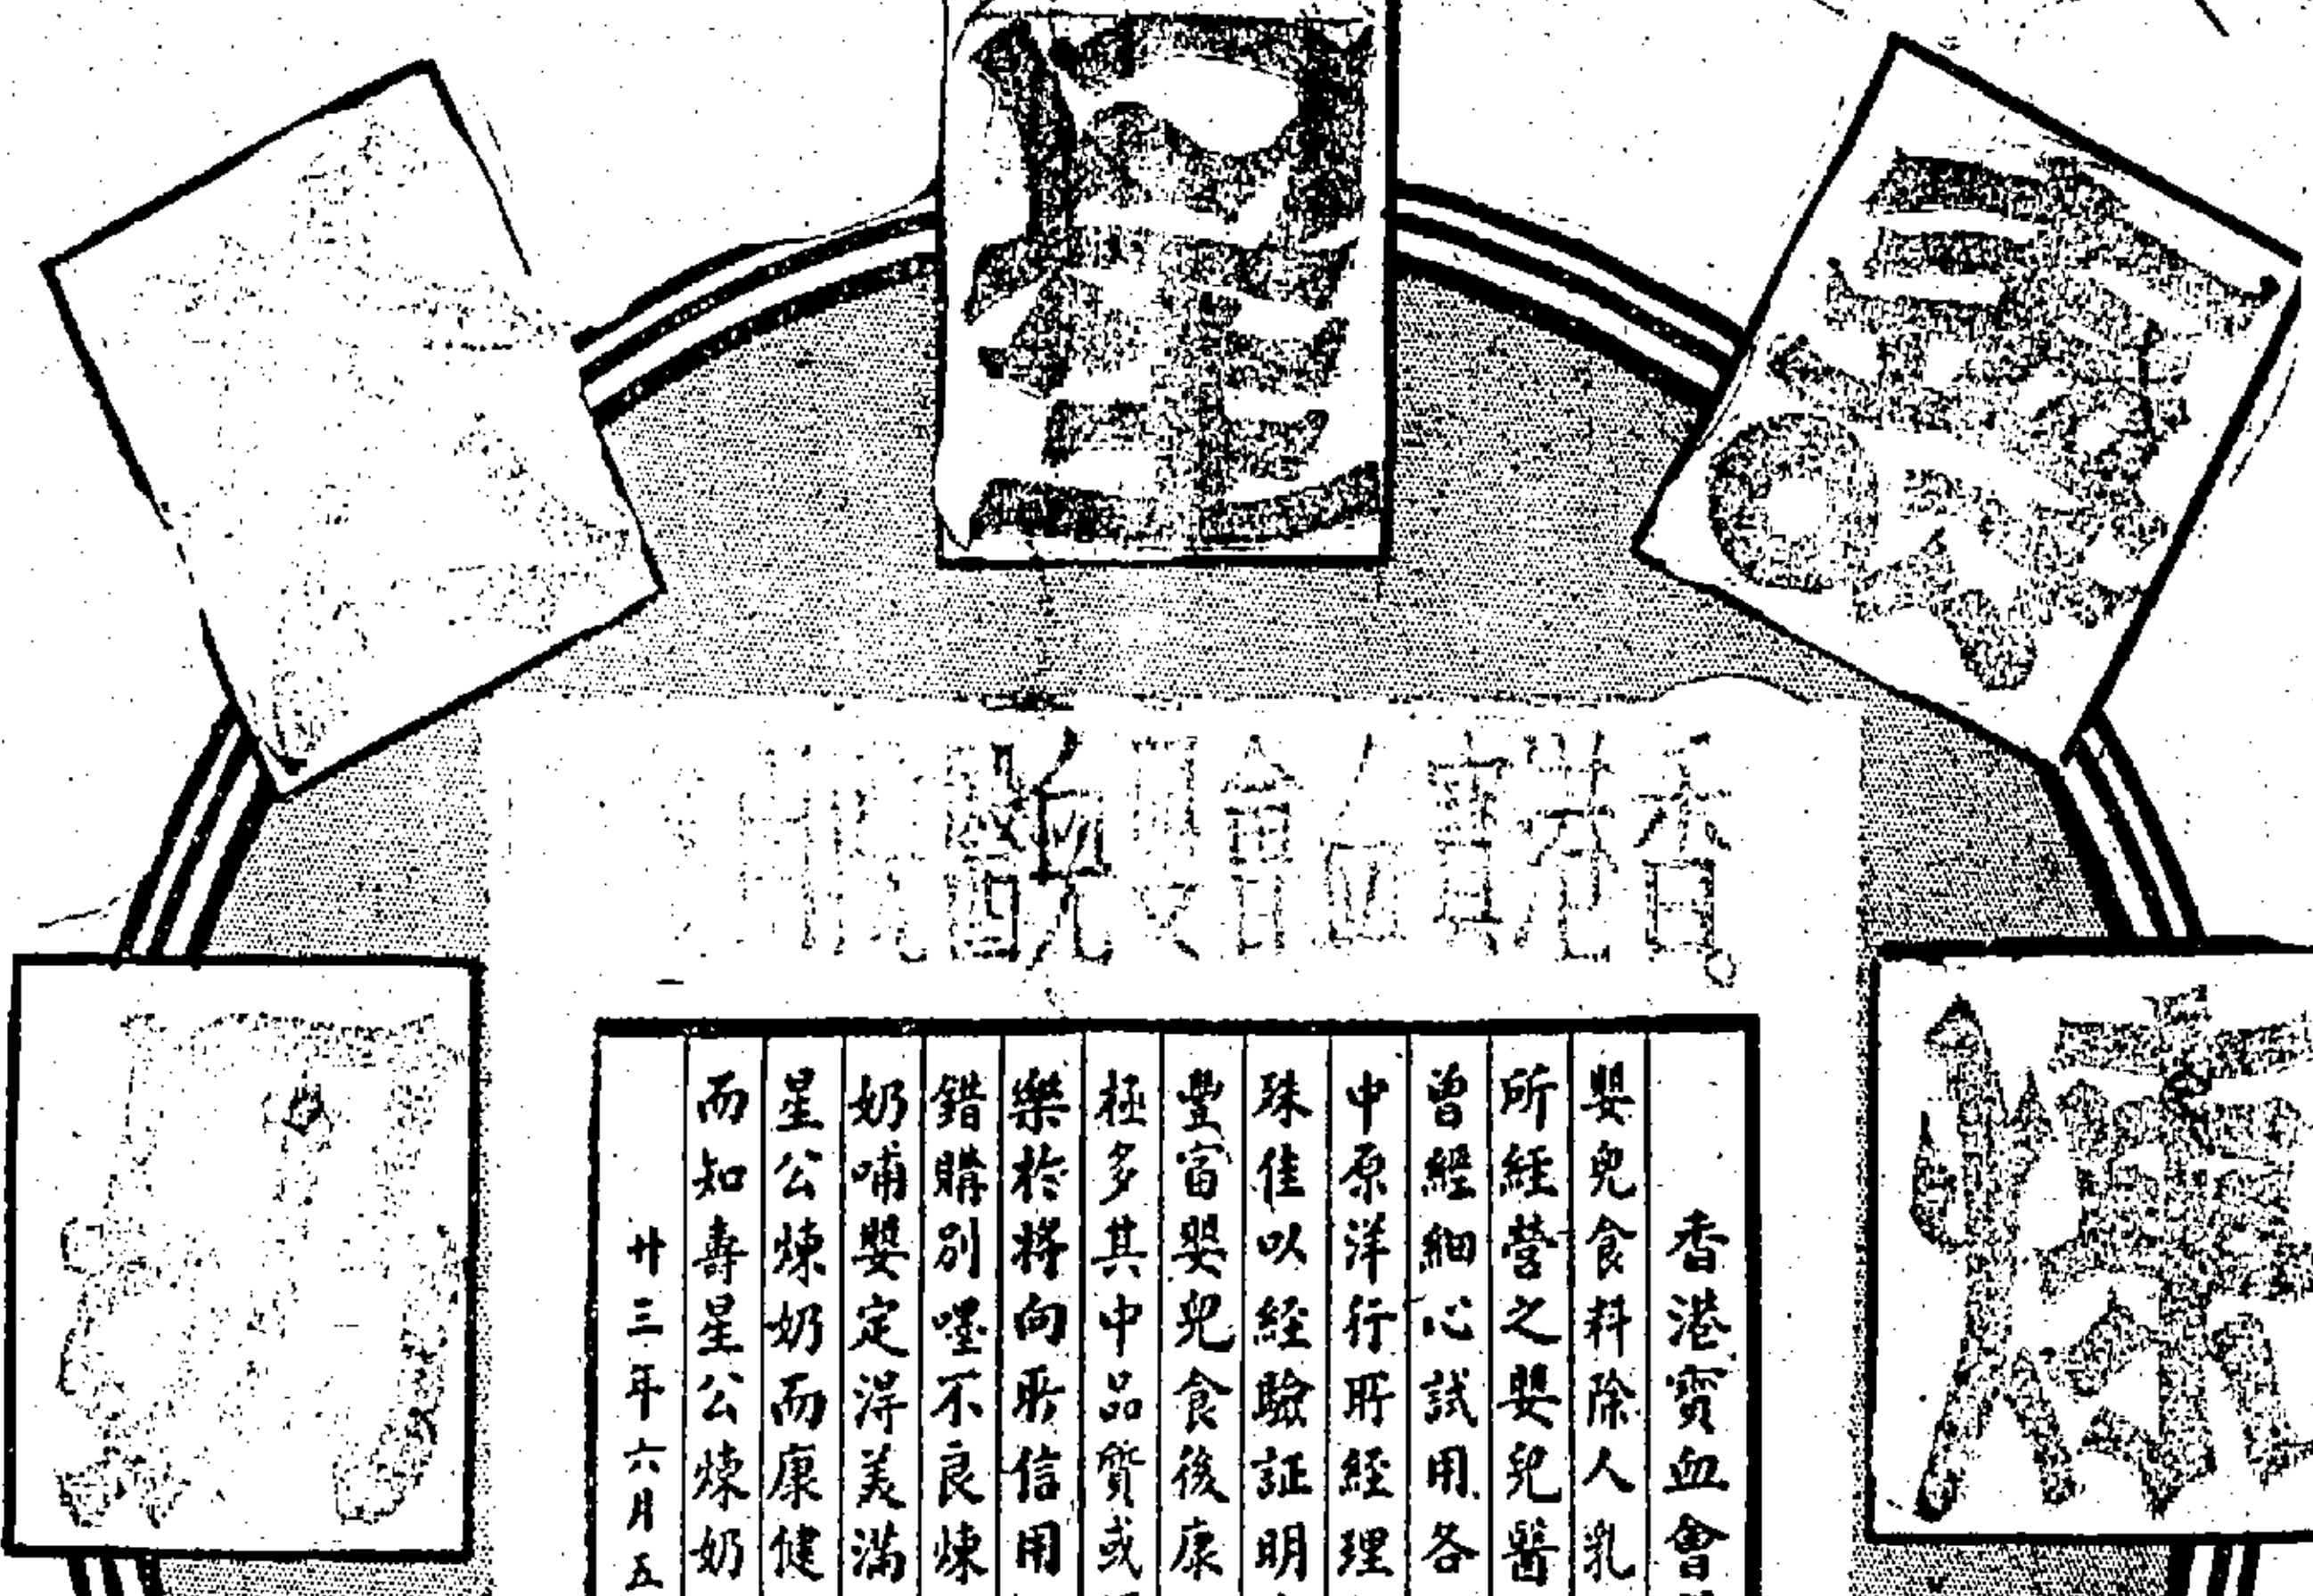 壽星公
煉奶
香港寶血會嬰
香港寶血會
嬰兒食料除人乳
所經營之嬰兒醫
曾經細心試用各
中原洋行所經理
殊佳以經驗証明
豐富嬰兒食後康
極多其中品質或
樂於將向所信用
錯購別嚜不良煉
奶哺嬰定得美滿
星公煉奶而康健
而知壽星公煉奶
廿三年六月五